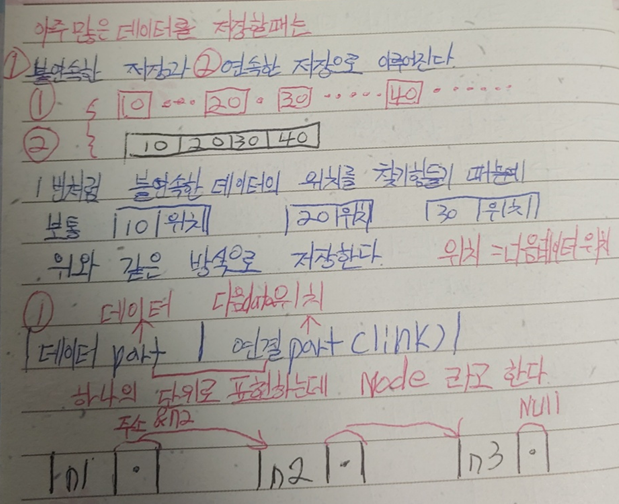 아주 많은 데이터를 저장할때는
① 불연속한 저장과 ② 연속한 저장으로 이루어진다
① 10 ···· 20 · 30 ······ 40 ·······
② 10 20 30 40
1번처럼 불연속한 데이터의 위치를 찾기힘들기 때문에
보통 10 위치 20 위치 30 위치
위와 같은 방식으로 저장한다. 위치 = 다음데이터위치
① 데이터 다음data위치
데이터 part 연결part (link)
하나의 단위로 표현하는데 Node 라고 한다
주소 &n2 Null
n1 · n2 · n3 ·